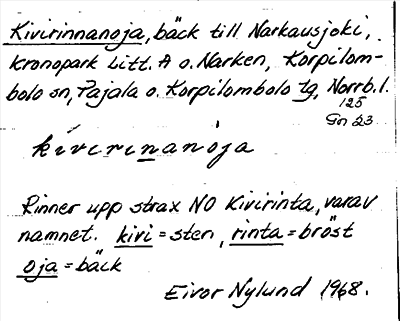 Kivirinnanoja, bäck till Narkausjoki,
kronopark Litt. A o. Narken, Korpilom-
bolo sn, Pajala o. Korpilombolo tg, Norrb. l.
125
Gn 23
kivirinanòja
Rinner upp strax NO Kivirinta, varav
namnet. kivi = sten, rinta = bröst
oja = bäck
Eivor Nylund 1968.